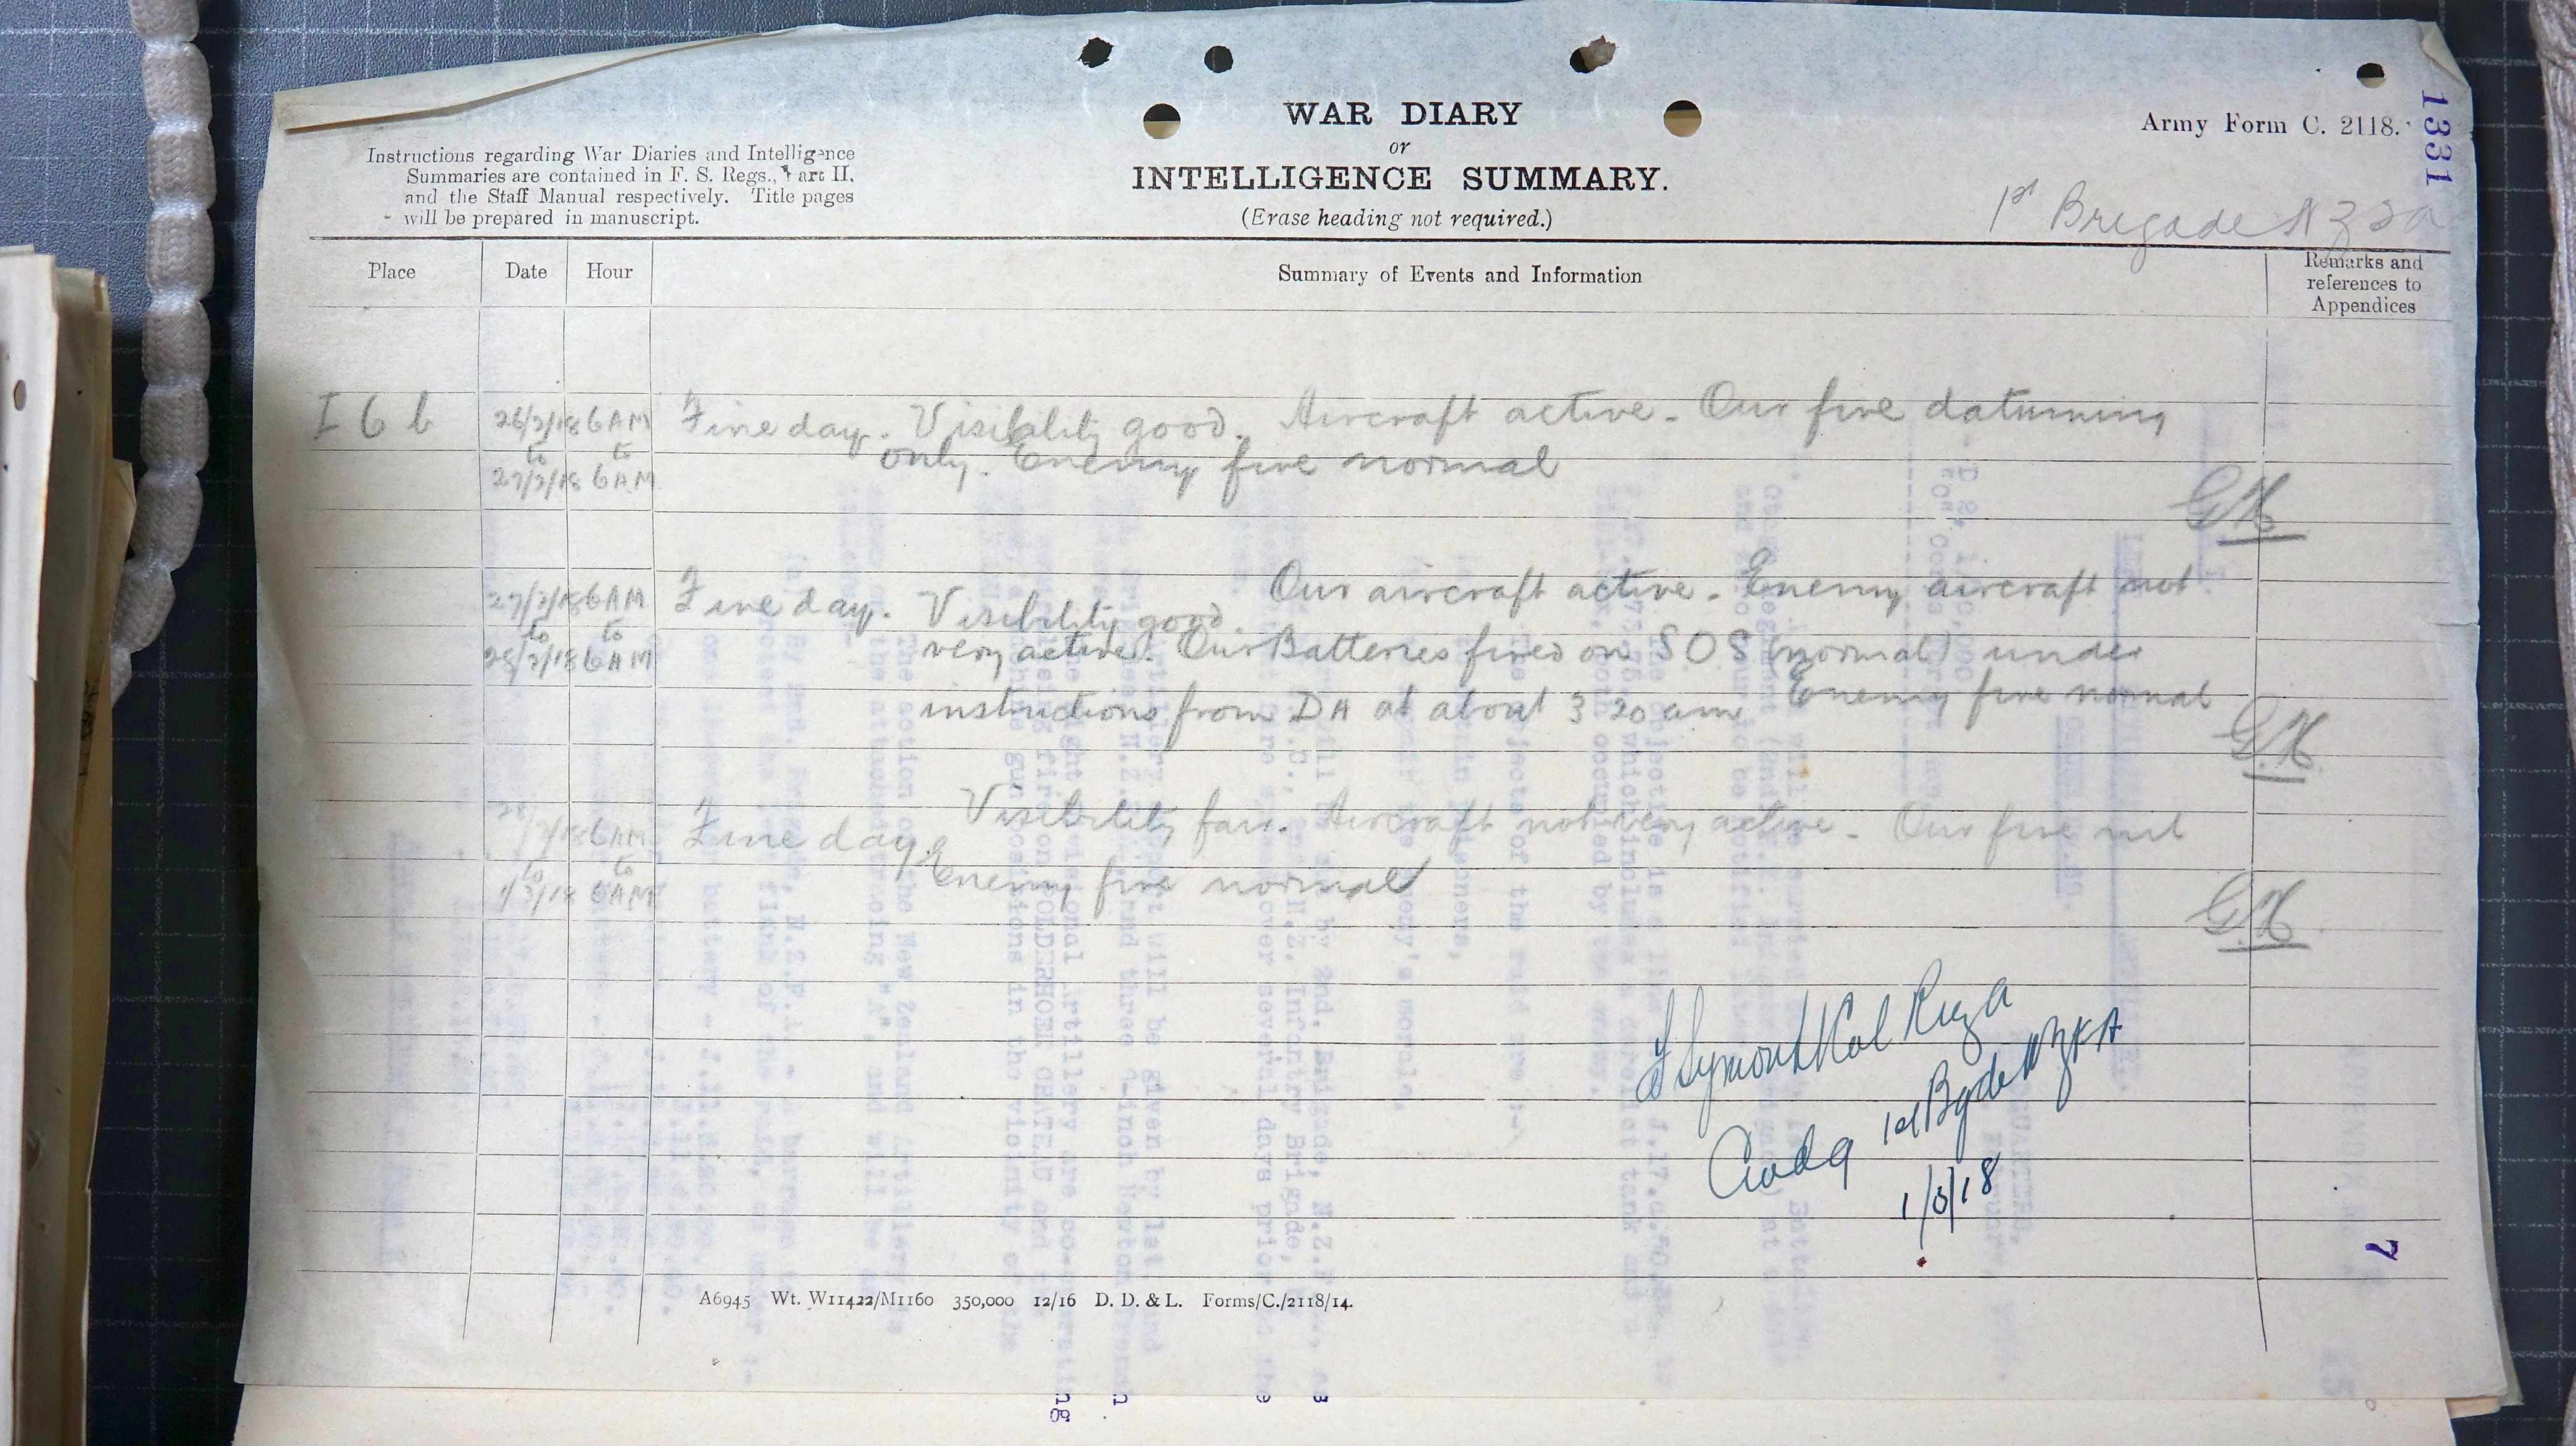 WAR DIARY
or
INTELLIGENCE SUMMARY.
(Erase heading not required.)
Instructions regarding War Diaries and Intelligence
Summaries are contained in F. S. Regs., Part II.
and the Staff Manual respectively. Title pages
will be prepared in manuscript.
Army Form C. 2118.
1331
1st Brigade NZFA
Place Date Hour Summary of Events and Information Remarks and references to Appendices
I 6 b 26/2/18 6AM Fine day. Visibility good. Aircraft active - Our fire datuming
to to only. Enemy fire normal
27/2/18 6AM
GH
27/2/18 6AM Fine day. Visibility good. Our aircraft active. Enemy aircraft not
to to very active. Our Batteries fired on SOS (normal) under
28/2/18 6AM instructions from DA at about 3 20 am Enemy fire normal
GH
28/2/18 6AM Fine day. Visibility fair. Aircraft not very active - Our fire nil
to to Enemy fire normal
1/3/18 6AM
GH
Col
1st Bgde NZFA
1/3/18
7
A6945 Wt. W11422/M1160 350,000 12/16 D. D. & L. Forms/C./2118/14.